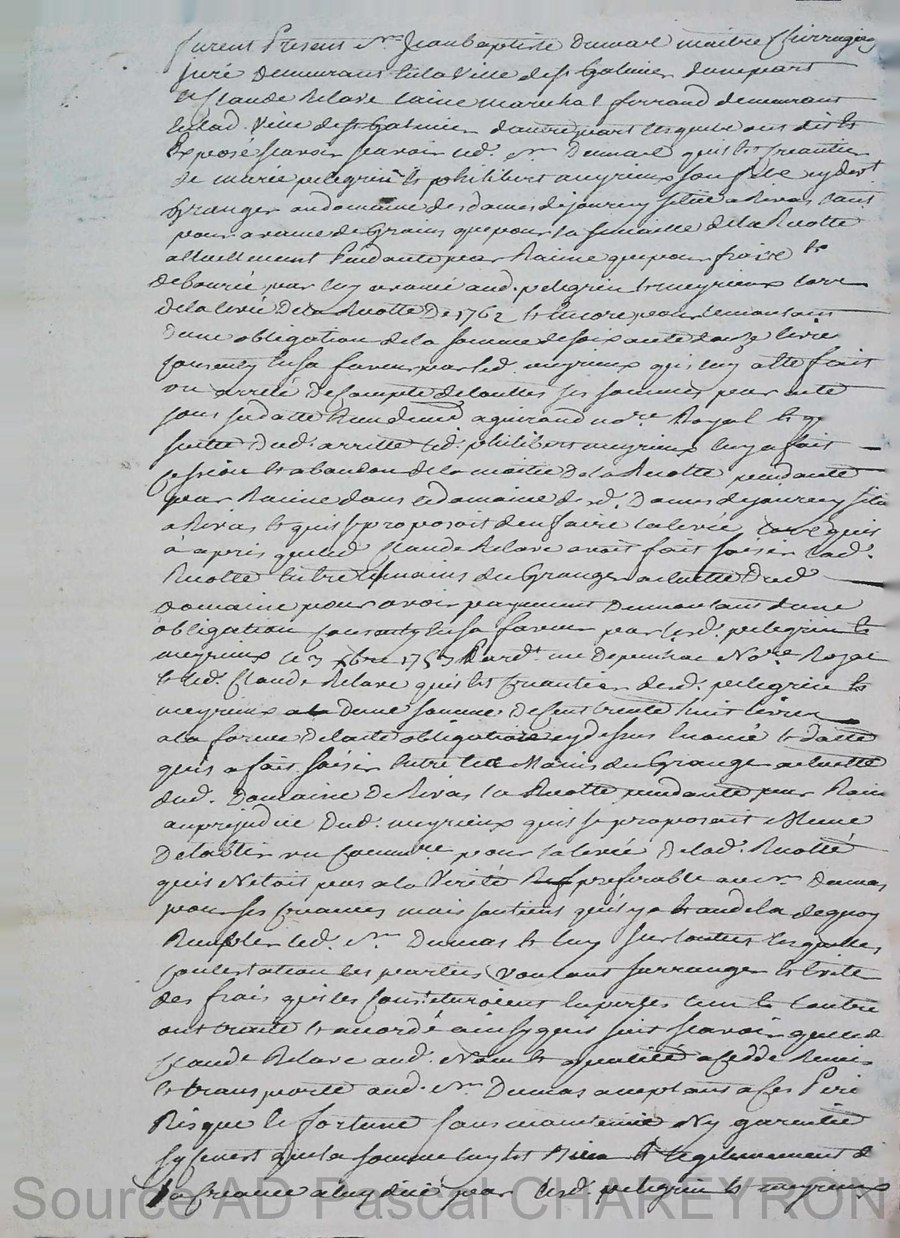 furent Present Sr Jeanbaptiste Dumas maitre Chirurgien
juré demeurant en la Ville de st Galmier dune part
et Claude Relave laine marechal ferrand demeurant
en lad. Ville de st Galmier dautre part lesquels ont dit et
Exposé scavoir scavoir led. Sr Dumas quil est creantier
de marie pelegrin et philibert meyrieux son
Granger au domaine des dames de jourcey situé a Rivas tant
pour avance de Grains que pour la semaille de la Recolte
actuellement Pendante par Racine que pour fraix et
par luy aud. pelegrin et meyrieux lors
de la levé de la Recolte de 1762 et encore pour le montant
dune obligation de la somme de soixante livres
consenty en sa faveur par led. meyrieux quil luy a fait
un arrêté de compte de toutes ses sommes par acte
sous sa datte aguirand nore Royal et en
suitte dud. arretté led. philibert meyrieux luy a fait
cession et abandon de la moitié de la Recolte pendante
par Racine dans le domaine desd. Dames de jourcey situé
a Rivas et quil se proposoit den faire la levée quil
a apris que led. Claude Relave avoit fait saisir lad.
Recolte entre les mains du Granger actuelle dud.
domaine pour avoir payement du montant dune
obligation consenty en sa faveur par lesd. pelegrin et
meyrieux le 3 xbre 1757 Nore Royal
et led. Claude Relave quil est Creantier desd. pelegrin et
meyrieux dune somme de Cent trente huit livres
a la forme de lacte obligatoire cy dessus enoncé et datté
quil a fait saisir entre les Mains du Granger actuelle
dud. Domaine de Rivas la Recolte pendante par Racine
au prejudice dud. meyrieux quil se proposoit Même
detablir un pour la levée de lad. Recolte
quil Netoit pas a la Verité preferable au Sr Dumas
pour ses creances mais soutient quil y a et au dela de quoy
Remplir led. Sr Dumas et luy sur toutes lesquelles
contestation les parties Voulant sarranger et Eviter
des frais quils tous et contre
ont traité et accordé ainsy quil suit scavoir que led.
Claude Relave aud. Nom et qualité a cedde Remis
et transporté aud. Sr Dumas acceptant a ses Peril
Risque et fortune sans maintenue Ny garentie
sy ce nest que la somme luy est et legitimement dû
La Creance a luy düe par lesd. pelegrin et meyrieux
Source AD Pascal CHAKEYRON